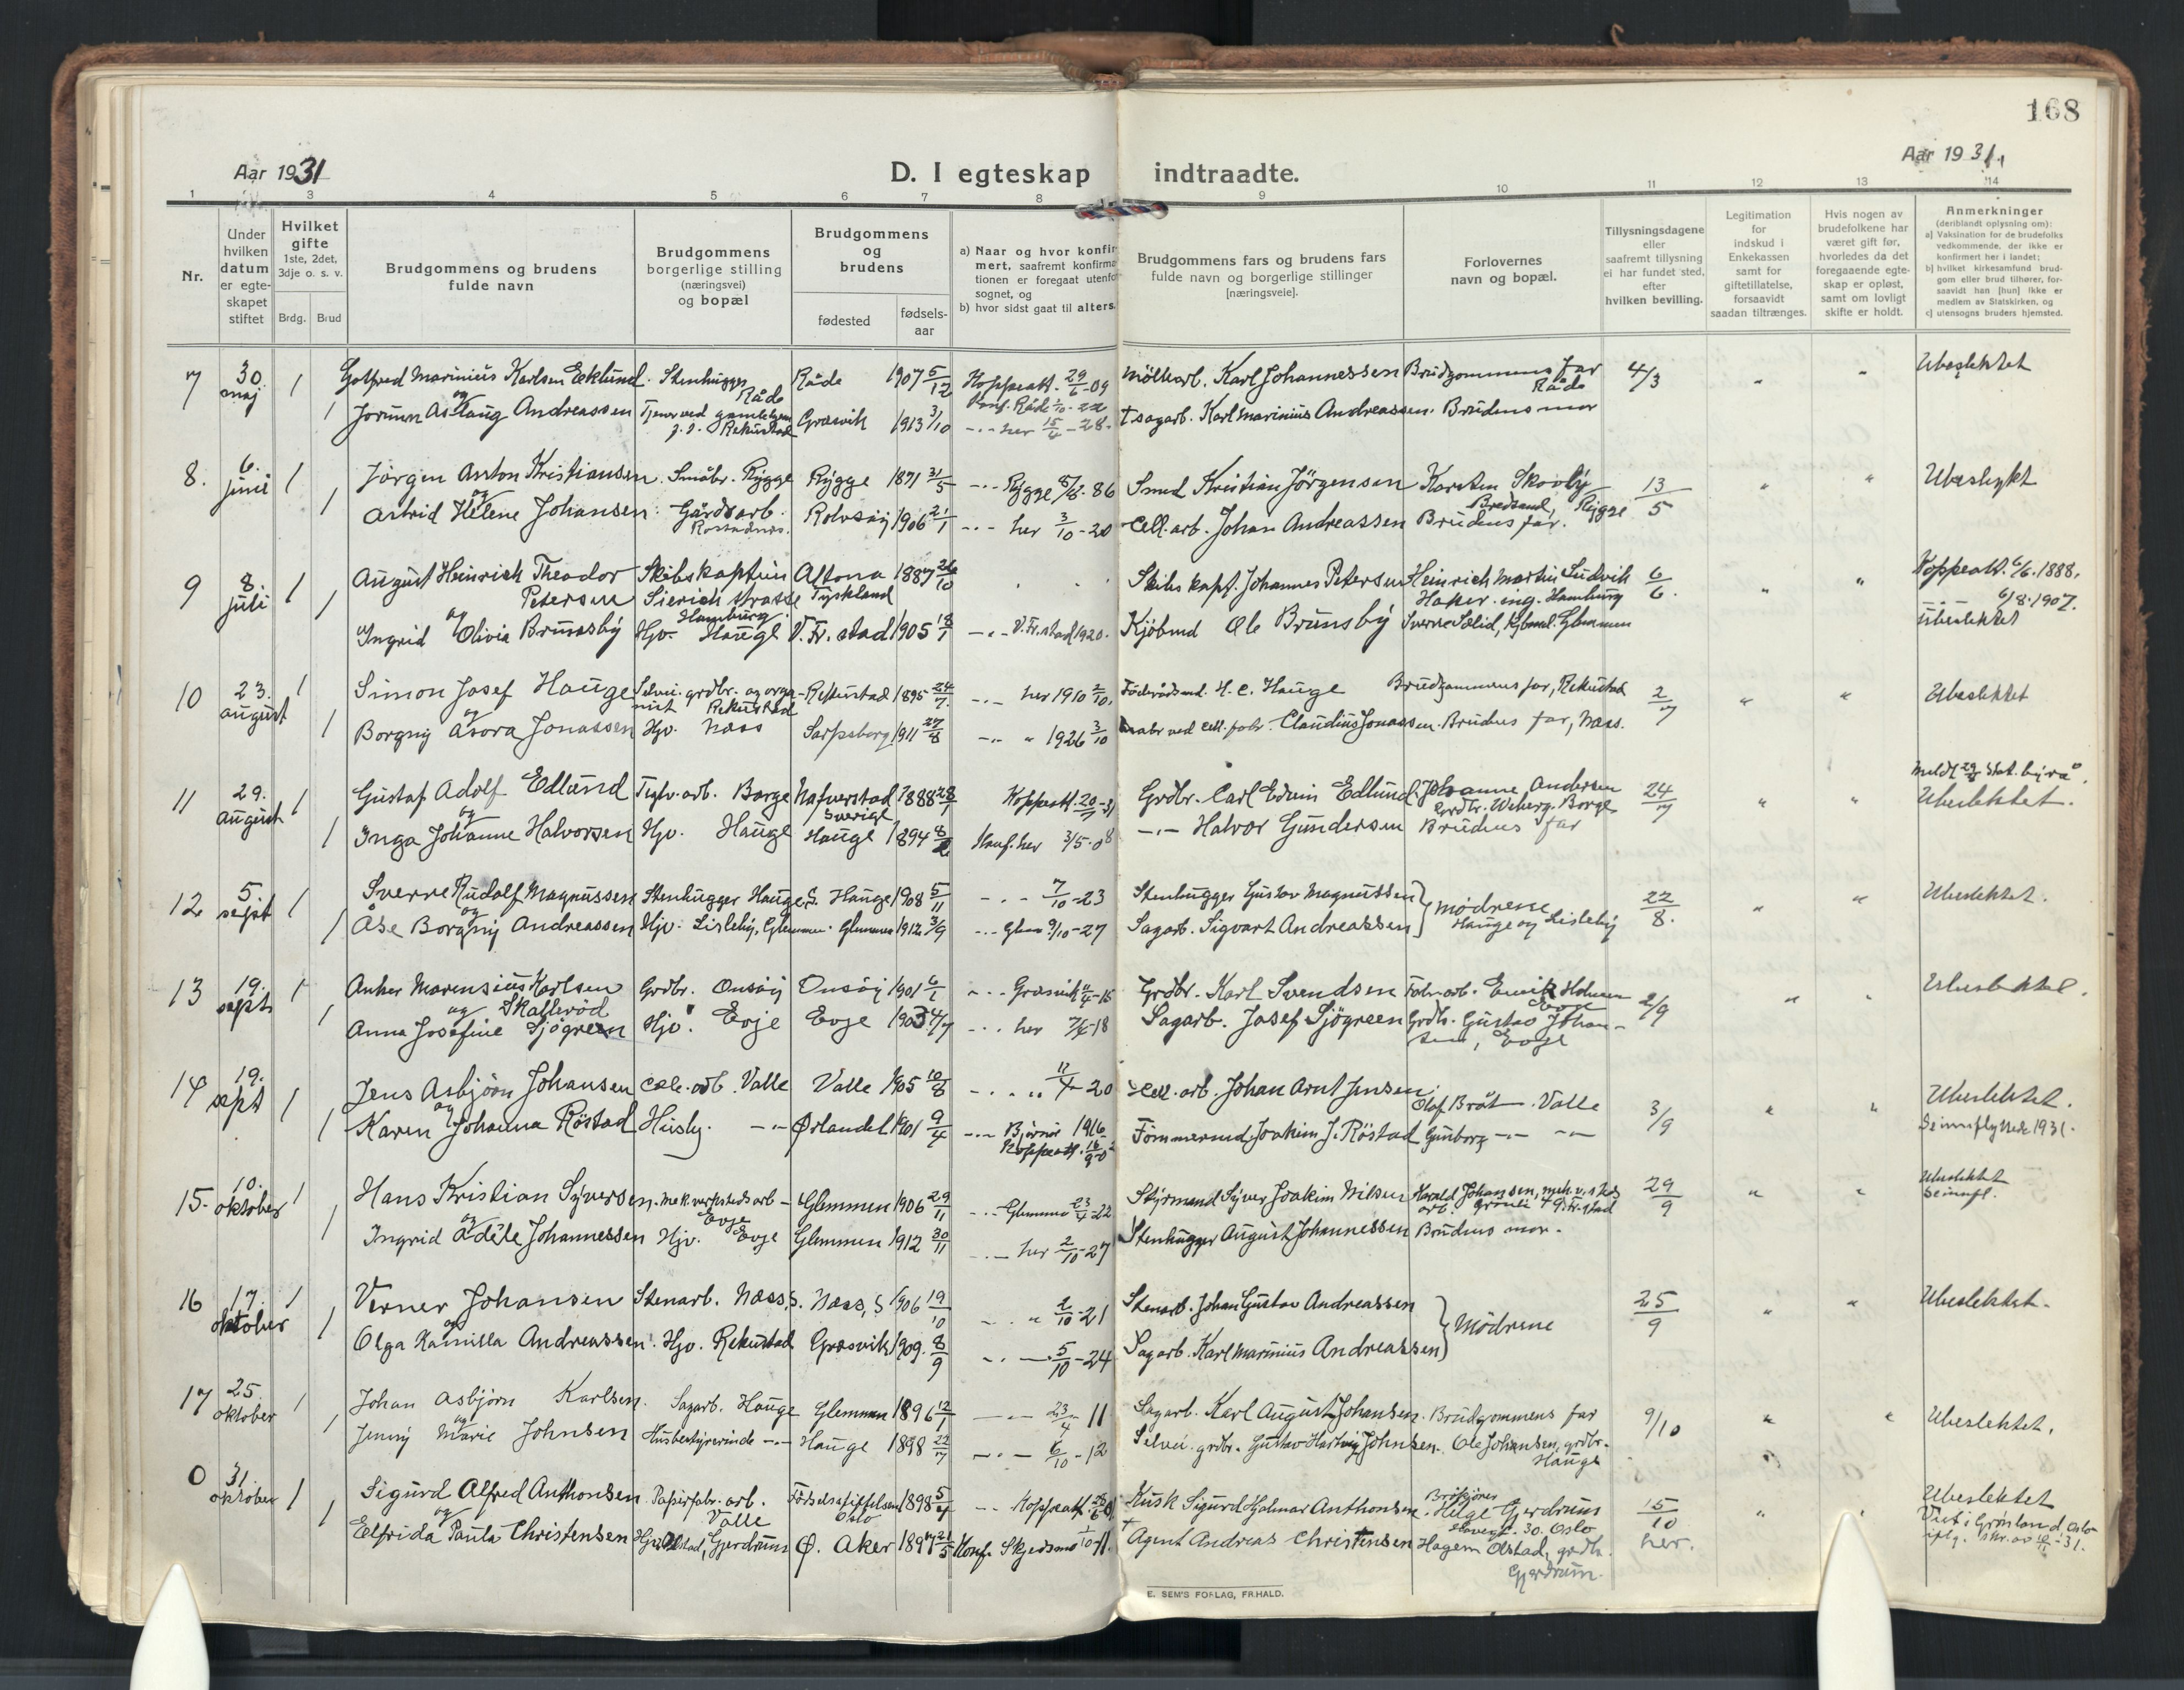 168
Aar 1931
D. I egteskap indtraadte.
Aar 1931.
1 3 4 5 6 7 8 9 10 11 12 13 14
Nr.
Under hvilken datum er egteskapet stiftet
Hvilket gifte 1ste, 2det, 3dje o. s. v.
Brdg. Brud
Brudgommens og brudens fulde navn
Brudgommens borgerlige stilling (næringsvei) og bopæl
Brudgommens og brudens
fødested
fødsels-aar
a) Naar og hvor konfir
mert, saafremt konfirma
tionen er foregaat utenfo
sognet, og
b) hvor sidst gaat til alters.
Brudgommens fars og brudens fars fulde navn og borgerlige stillinger [næringsveie].
Forlovernes navn og bopæl.
Tillysningsdagene eller saafremt tillysning ei har fundet sted, efter hvilken bevilling.
Legitimation for indskud i Enkekassen samt for giftetillatelse, forsaavidt saadan tiltrænges.
Hvis nogen av brudefolkene har været gift før, hvorledes da det foregaaende egteskap er opløst, samt om lovligt skifte er holdt.
Anmerkninger
(deriblandt oplysning om):
a] Vaksination for de brudefolks vedkommende, der ikke er konfirmert her i landet;
b] hvilket kirkesamfund brudgom eller brud tilhører, forsaavidt han [hun] ikke er medlem av Statskirken, og
c] utensogns bruders hjemsted.
7 30. maj 1 Gotfred Marinius Karlsen Ecklund Stenhugger Råde Råde 1907 5/12 Koppeatt. 29/6-09 Karl Johannessen Brudgommens far Råde 4/3 " " Ubeslektet
og
1 Jorunn Aslaug Andreassen Rekustad Græsvik 1913 3/10 Konf. Råde 2/10-22 -"- her 15/4-28. † sagarb. Karl Marinius Andreassen. Brudens mor
8. 6. juni 1 Jørgen Anton Kristiansen Småbr. Rygge Rygge 1871 31/5 -"- Rygge 86 Smed Kristian Jørgensen Karsten Skovly Bredsand, Rygge 13/5 " " Ubeslykt
og
1 Astrid Helene Johansen Gårdsarb. Rolvsøy 1906 21/1 -"- her 3/10-20 Cell. arb. Johan Andreassen Brudens far.
9 8. juli 1 August Heinrich Theodor Petersen Skibskaptein Sierich strasse Hamburg Altona Tyskland 1887 26/10 Skibs kapt. Johannes Petersen Heinrich Martin Ludvik Haker. ing. Hamburg 6/6. " " Koppeatt. 6/6. 1888.
6/8. 1907.
og
1 Ingrid Olivia Brunsby Hjv. Hauge V. Fr. stad 1905 18/1 -"- V. Fr. stad 1920. Kjøbmd Ole Brunsby Sverre Sælid, kjbmd. Glemmen ubeslektet
10 23. august 1 Simon Josef Hauge Selvei. grdbr. og organist Rekustad Rekustad 1895 24/7. -"- her 1910 2/10. Föderådsmd. H. C. Hauge Brudgommens far, Rekustad 2/7 " " Ubeslektet
og
1 Borgny Asora Jonassen Hjv. Næss Sarpsborg 1911 27/8 -"- " 1926 3/10 ved cell. fabr. Claudius Jonassen. Brudens far, Næss.
11 29. august 1 Gustaf Adolf Edlund Borge Nafverstad Sverige 1888 28/7 Koppeatt. 20/7-31 Grdbr. Carl Edvin Edlund Johanne Andersen Borge 24/7 " " Meldt 29/8 Stat. byrå.
Ubeslektet.
og
1 Inga Johanne Halvorsen Hjv. Hauge Hauge 1894 Konf. her 3/5-08 -"- Halvor Gundersen Brudens far
12 5 sept 1 Sverre Rudolf Magnussen Stenhugger Hauge, S. Hauge 1908 5/11 -"- 7/10-23 Stenhugger Gustav Magnussen } Mødrene Hauge og Lisleby 22/8. " " Ubeslektet.
og
1 Åse Borgny Andreassen Hjv. Lisleby, Glemmen. Glemmen 1912 3/9 -"- Glem 9/10-27 Sagarb. Sigvart Andreassen
13 19. sept 1 Anker Marensius Karlsen Skallerød Grdbr. Onsøy Onsøy 1901 6/1 -"- Græsvik 11/4-15 Grdbr. Karl Svendsen Fabr. arb. Emik Holmen Evje 2/9 " " Ubeslektet.
og
1 Anna Josefine Sjøgreen Hjv. Evje Evje 1903 4/7 -"- her 7/4-18 Sagarb. Josef Sjøgreen Grdb. Gustav Johansen, Evje
14 19. sept 1 Jens Asbjörn Johansen Cell. arb. Valle Valle 1905 10/8 -"- " 11/4-20 Cell. arb. Johan Arnt Jensen Olaf Bråt. Valle 3/9 " " Ubeslektet.
og
1 Karen Johanna Röstad Husby. -"- Ørlandet 1901 9/4 -"- Bjørnør 1916 Koppeatt. Tömmermd. Joakim J. Röstad Gunborg -"- -"- innflyttede 1931.
15. 10. oktober 1 Hans Kristian Syversen. Mek. verkstedsarb - Evje Glemmen 1906 29/11 -"- Glemmen 23/4-22 Styrmand Syver Joakim Nilsen Harald Johansen, mek. v. sted arb. 29/9 " " Ubeslektet
innfl.
og
1 Ingrid Adéle Johannessen Hjv. Evje Glemmen 1912 30/11 -"- her 2/10-27 Stenhugger August Johannessen Brudens mor.
16 17. oktober 1 Verner Johansen Stenarb. Næss, S. Næss, S 1906 19/10 -"- " 2/10-21 Stenarb. Johan Gustav Andreassen } Mødrene 25/9 " " Ubeslektet.
og
1 Olga Kamilla Andreassen Hjv. Rekustad Græsvik 1909. 8/9 -"- 5/10-24 Sagarb. Karl Marinius Andreassen
17 25. oktober 1 Johan Asbjørn Karlsen. Sagarb. Hauge Glemmen 1896 12/1 -"- 23/4 11 Sagarb. Karl August Johansen. Brudgommens far 9/10 " " Ubeslektet.
og
1 Jenny Marie Johnsen Husbestyrerinde -"- Hauge 1898 22/7 -"- 6/10-12 Selvei. grdbr. Gustav Hartvig Johnsen. Ole Johansen, grdbr. Hauge
0 31. oktober 1 Sigurd Alfred Anthonsen Papirfabr. arb. Valle Födselsstiftelsen Oslo 1898 5/4 -"- Koppeatt. Kusk Sigurd Hjalmar Anthonsen. Helge Gjerdrum 30. Oslo 15/10 her. " " Ubeslektet
Viet i Grønland Oslo
og
1 Elfrida Paula Christensen Hjv. Olstad, Gjerdrum Ø. Aker 1897 21/5 Konf. Skjedsmo 1/10-11. † Agent Andreas Christensen Hagem Olstad, grdb. Gjerdrum.
E. SEM'S FORLAG, FR.HALD.